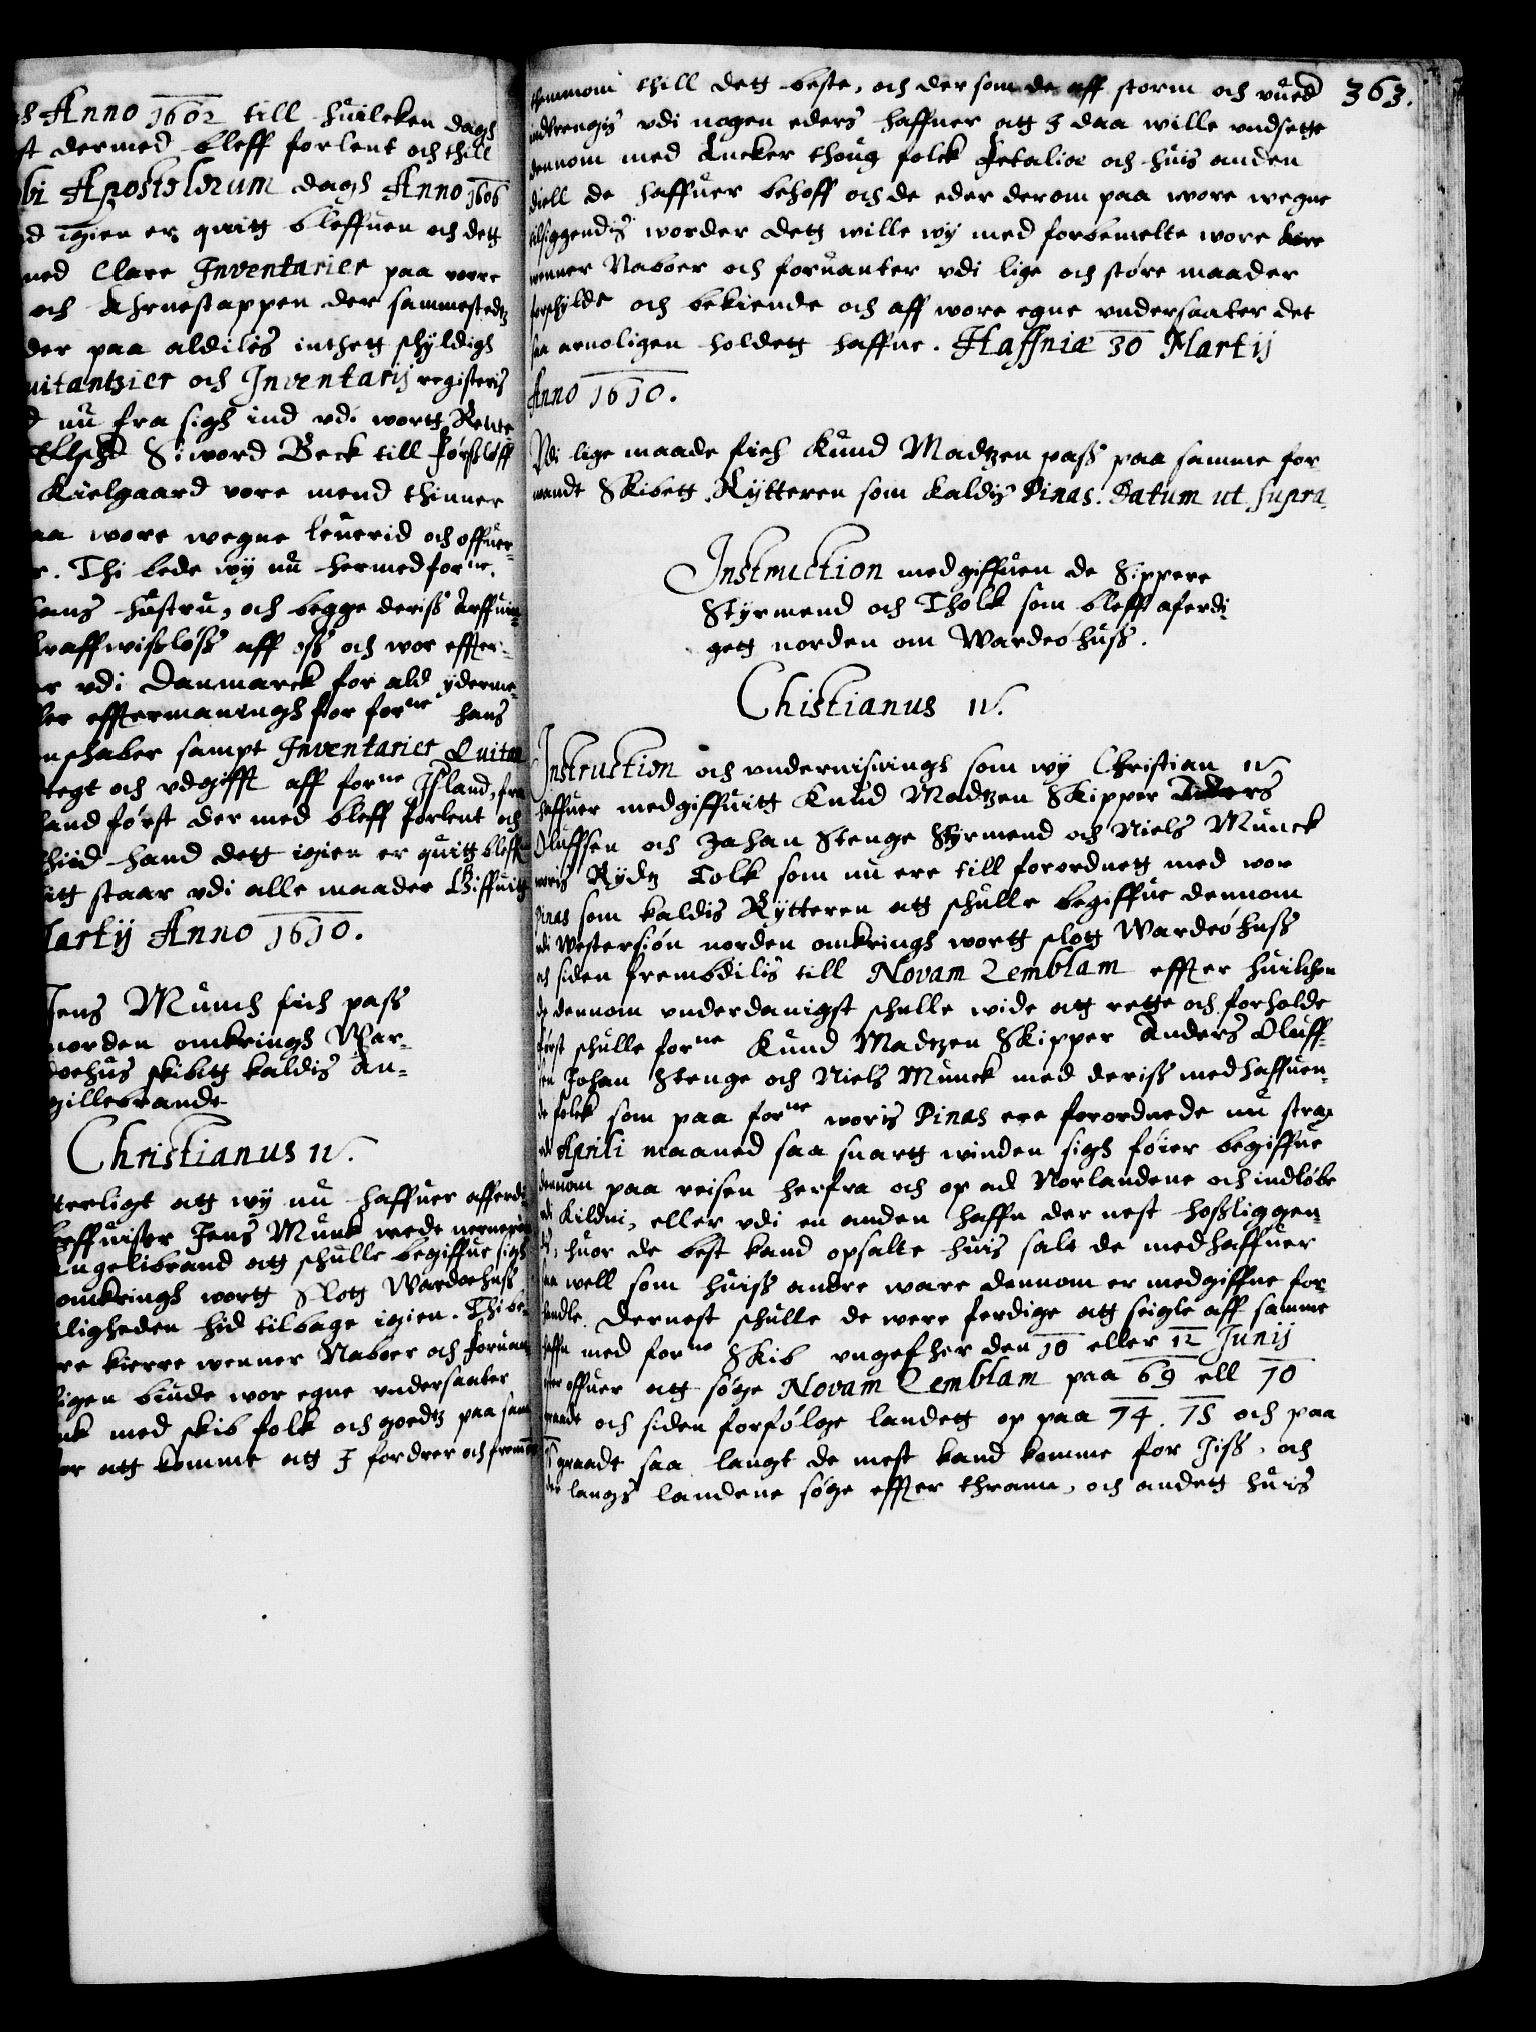 Anno 1602 till huilcken dagh
dermed bleff forlent och thill
Apostolorum dagh Anno 1606
igien er quitg bleffuen och dett
med Clare Inventarier paa worre
och Ahrnestappen der sammestedtz
der paa aldilis inthett schyldigh
Quitantzier och Inventarij registeris
nu fra sigh ind vdi wortt Rente
Siword Beck till Førsløff
Kielgaard vore mend thinner
paa wore wegne leuerid och offuer-
Thi bede wij nu hermed forne.
hans hustru, och begge deriss Arffuin-
kraffwissløss aff oss och wor effter-
vdi Danmarck for ald yderme-
efftermaningh for forne hans
schaber sampt Inventarier Quitan
och vdgifft aff forne Issland, fra
land først der med bleff forlent och
thiid hand dett igien er quitt bleff
staar vdi alle maader Giffuitt
Martij Anno 1610.
Jens Munch fich pass
norden omkringh War-
døehus skibitt kaldis An-
gillebrande
Christianus IV.
atterligt att wij nu haffuer afferdi-
Jens Munk mede
Angelibrand att schulle begiffue sigh
omkringh wortt Slott Wardøehuss
leiligheden hid tilbage igien. Thi be-
kierre wenner Naboer och foruan-
biude wor egne vndersaater
med skib folk och goedtz paa samme
att komme att I fordrer och fremme
363.
themmom thill dett beste, och der som de aff storm och vued
indtrengis vdi nogen eders haffner att I daa wille vndsette
dennom med Ancker thoug folck Fetalie och huis anden
diell de haffuer behoff och de eder derom paa wore wegne
tilsiggendis worder dett wille wij med forbemelte wore kere
wenner Naboer och foruanter vdi lige och støre maader
forschylde och bekiende och aff wore egne vndersaater det
saa arnoligen holdett haffue. Haffniæ 30 Martij
Anno 1610.
Vdi lige maade fich Knud Madtzen pass paa samme for
wandt Skibett Rytteren som kaldis Pinas. Datum ut supra.
Instruction medgiffuen de Sippere
Styrmend och Tholk som bleff aferdi
gett norden om Wardeóhuss.
Chistianus IV.
Instruction och vnderuisningh som wij Christian IV
haffuer medgiffuitt Knud Madtzen Skipper Anders
Oluffsen och Jahan Stenge Styrmend och Niels Munck
woris Rydtz Tolk som nu ere till forordnett med wor
Pinas som kaldis Rytteren att schulle begiffue dennom
vdi Westersión norden omkringh wortt slott Wardeóhuss
och siden frembdilis till Novam Zemblam effter huilchen
de dennom vnderdanigst schulle wide att rette och forholde
først schulle forne Knud Madtzen Skipper Anders Oluff-
sen Johan Stenge och Niels Munck med deriss medhaffuen-
de folck som paa forne woris Pinas ere forordnede nu strax
vdi Aprili maaned saa snartt winden sigh føier begiffue
dennom paa reisen herfra och op ad Norlandene och indløbe
vdi Kildni, eller vdi en anden haffn der nest hossliggen-
dis, huor de best kand opsalte huis salt de medhaffuer
saa well som huiss andre ware dennom er medgiffne for-
handle. Dernest schulle de were ferdige att seigle aff samme
haffn med forne Skib vngefher den 10 eller 12 Junij
offuer att søge Novam Zemblam paa 69 ell 70
graade och siden forfølge landett op paa 74. 75 och paa
graadt saa langt de mest kand komme for Jiss, och
langs landene søge effter thraan, och andett huis